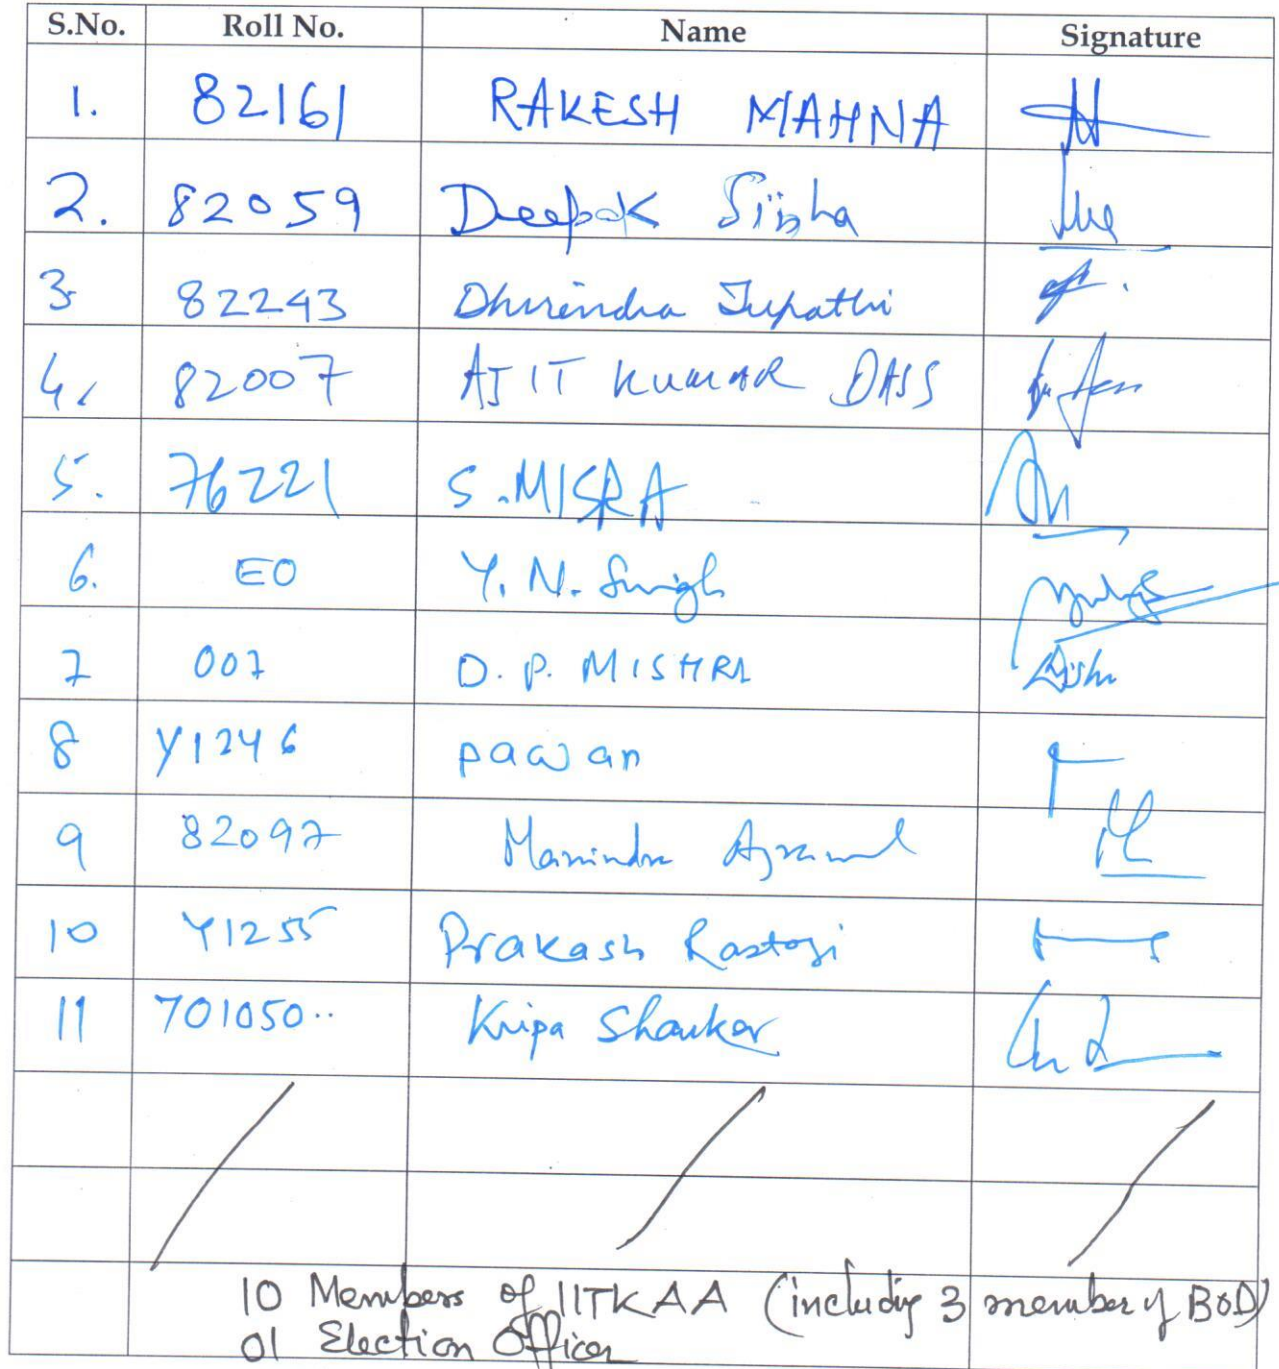 S.No. Roll No. Name Signature
1. 82161 RAKESH MAHNA
2. 82059 Deepak Sinha
3. 82243 Dhirendra Tripathi
4. 82007 AJIT KUMAR DASS
5. 76221 S.MISRA
6. EO Y. N. Singh
7 007 D. P. MISHRA
8 Y1246 pawan
9 82097 Manindra Agrawal
10 Y1255 Prakash Rastogi
11 701050.. Kripa Shanker
10 Members of IITKAA (including 3 member of BOD)
01 Election Officer